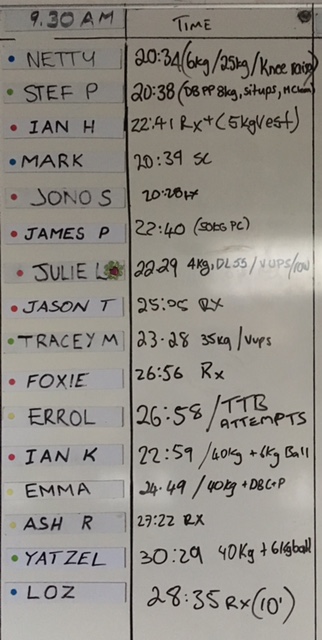 9.30 AM TIME
NETTY 20:34 (6kg/25kg/Knee raise)
STEF P 20:38 (DB PP 8kg, situps,
IAN H 22:41 Rx+ (5kg Vest)
MARK 20:39 SC
JONO S 20:28 Rx
JAMES P 22:40 (50KG PC)
JULIE L 22.29 4kg, DL55/VUPS/row
JASON T 25:05 RX
TRACEY M 23.28 35kg/Vups
FOXIE 26:56 Rx
ERROL 26:58/TTB ATTEMPTS
IAN K 22:59/40kg + 6kg Ball
EMMA 24.49/40kg + DB C+P
ASH R 27:22 RX
YATZEL 30:29 40Kg + 6kgball
LOZ 28:35 Rx (10')